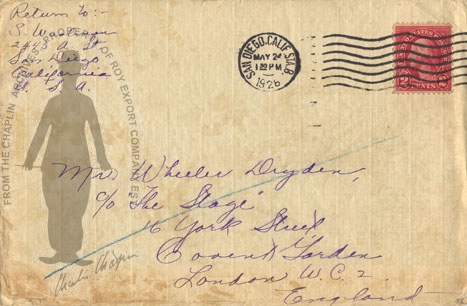 Return to:-
S. Watson
A St
San Diego
California
U. S. A.
SAN DIEGO, CALIF. STA. B
MAY 24
1926
2 CENTS 2
FROM THE CHAPLIN ARCHIVES PROPERTY OF ROY EXPORT COMPANY EST.
Charlie Chaplin
Mr. Wheeler Dryden,
c/o "The Stage"
16 York Street
Covent Garden
London W.C.2.
England